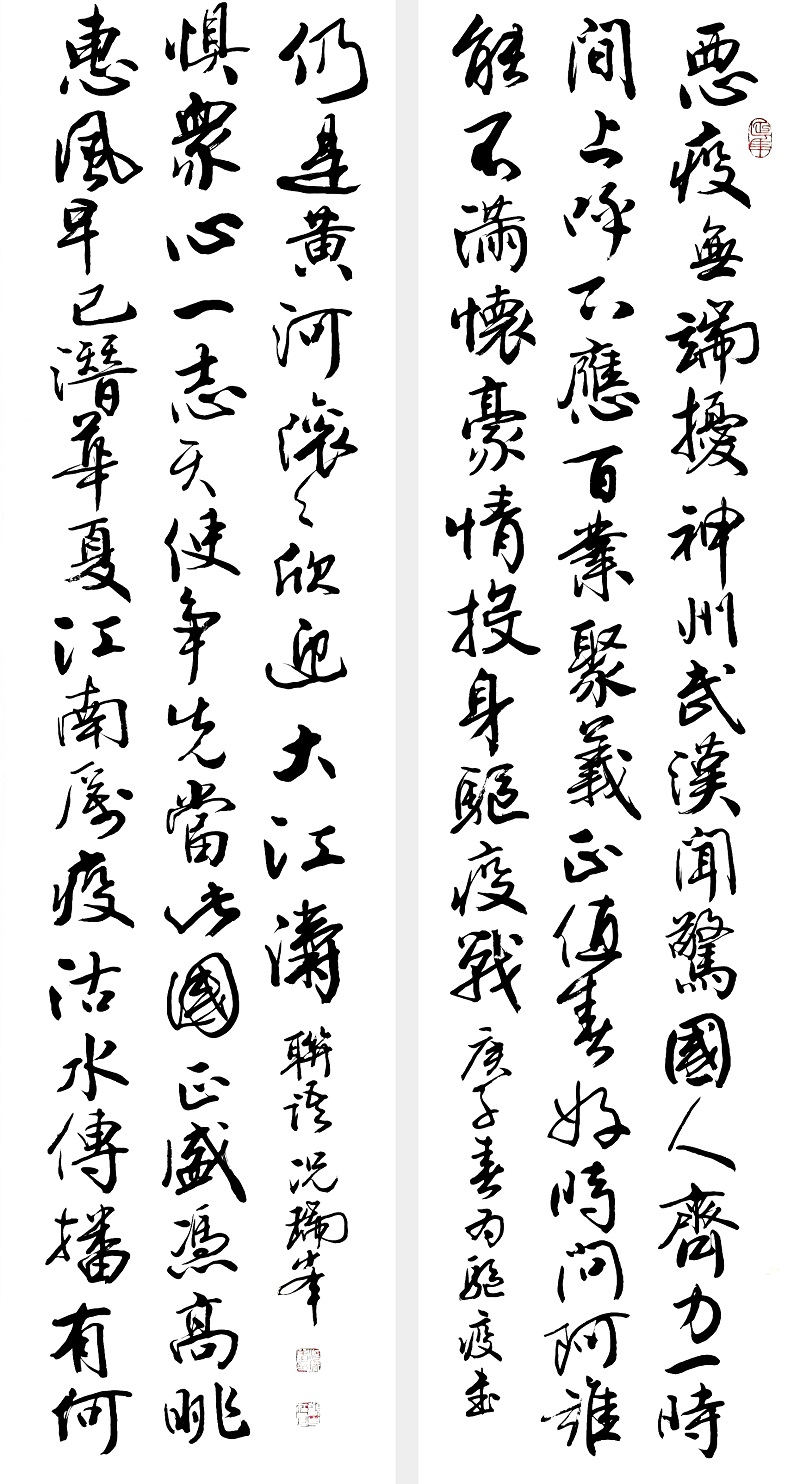 惡疫無端擾神州武漢聞驚國人齊力一時
間上呼下應百業聚義正值春好時問阿誰
能不滿懷豪情投身驅疫戰
庚子春為驅疫書
惠風早已潛華夏江南厲疫沽水傳播有何
懼眾心一志天使爭先當此國正盛憑高眺
仍是黃河滾々欣迎大江濤
聯語況瑞峰